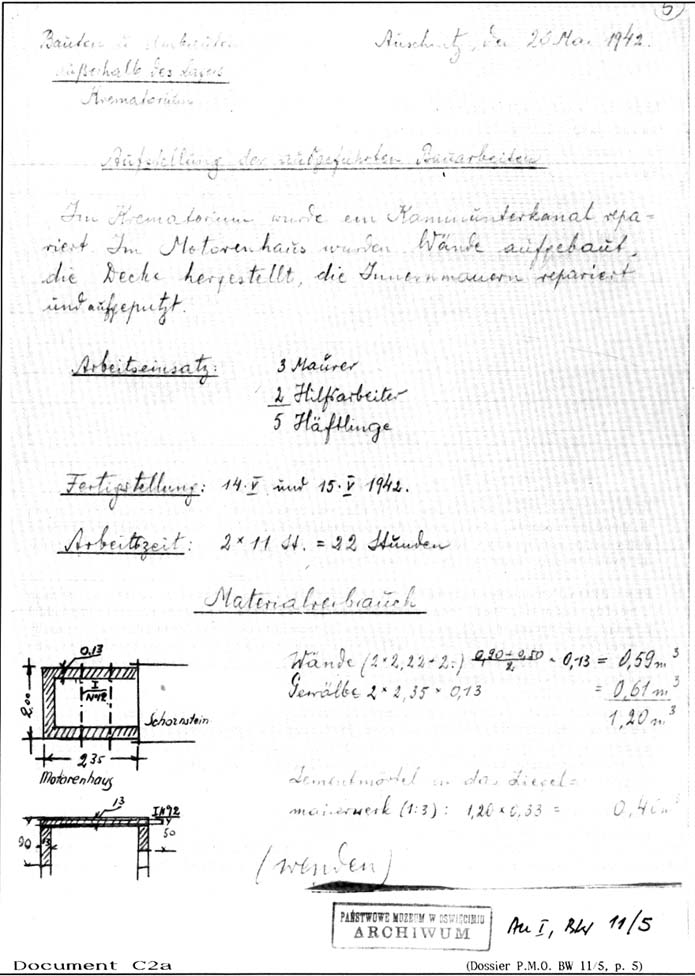 5
Bauten u. Umbauten
außerhalb des Lagers
Krematorium
Auschwitz, den 26 Mai 1942.
Aufstellung der ausgeführten Bauarbeiten
Im Krematorium wurde ein Kammunterkanal repa=
riert. Im Motorenhaus wurden Wände aufgebaut,
die Decke hergestellt, die Innernmauern repariert
und aufgeputzt.
Arbeitseinsatz: 3 Maurer
2 Hilfsarbeiter
5 Häftlinge
Fertigstellung: 14.V und 15.V 1942.
Arbeitszeit: 2 × 11 St. = 22 Stunden
Materialverbrauch
0,13
I
2,00
Schornstein
2,35
Motorenhaus
13
50
90
13
Wände (2×2,22+2.) 0,90+0,50 / 2. × 0,13 = 0,59 m³
Gewölbe 2 × 2,35 × 0,13 = 0,61 m³
1,20 m³
Zementmörtel in das Ziegel=
mauerwerk (1:3) : 1,20 × 0,33 = 0,40 m³
(wenden)
PAŃSTWOWE MUZEUM W OŚWIĘCIMIU
ARCHIWUM
Au I, BW 11/5
Document C2a
(Dossier P.M.O. BW 11/5, p. 5)